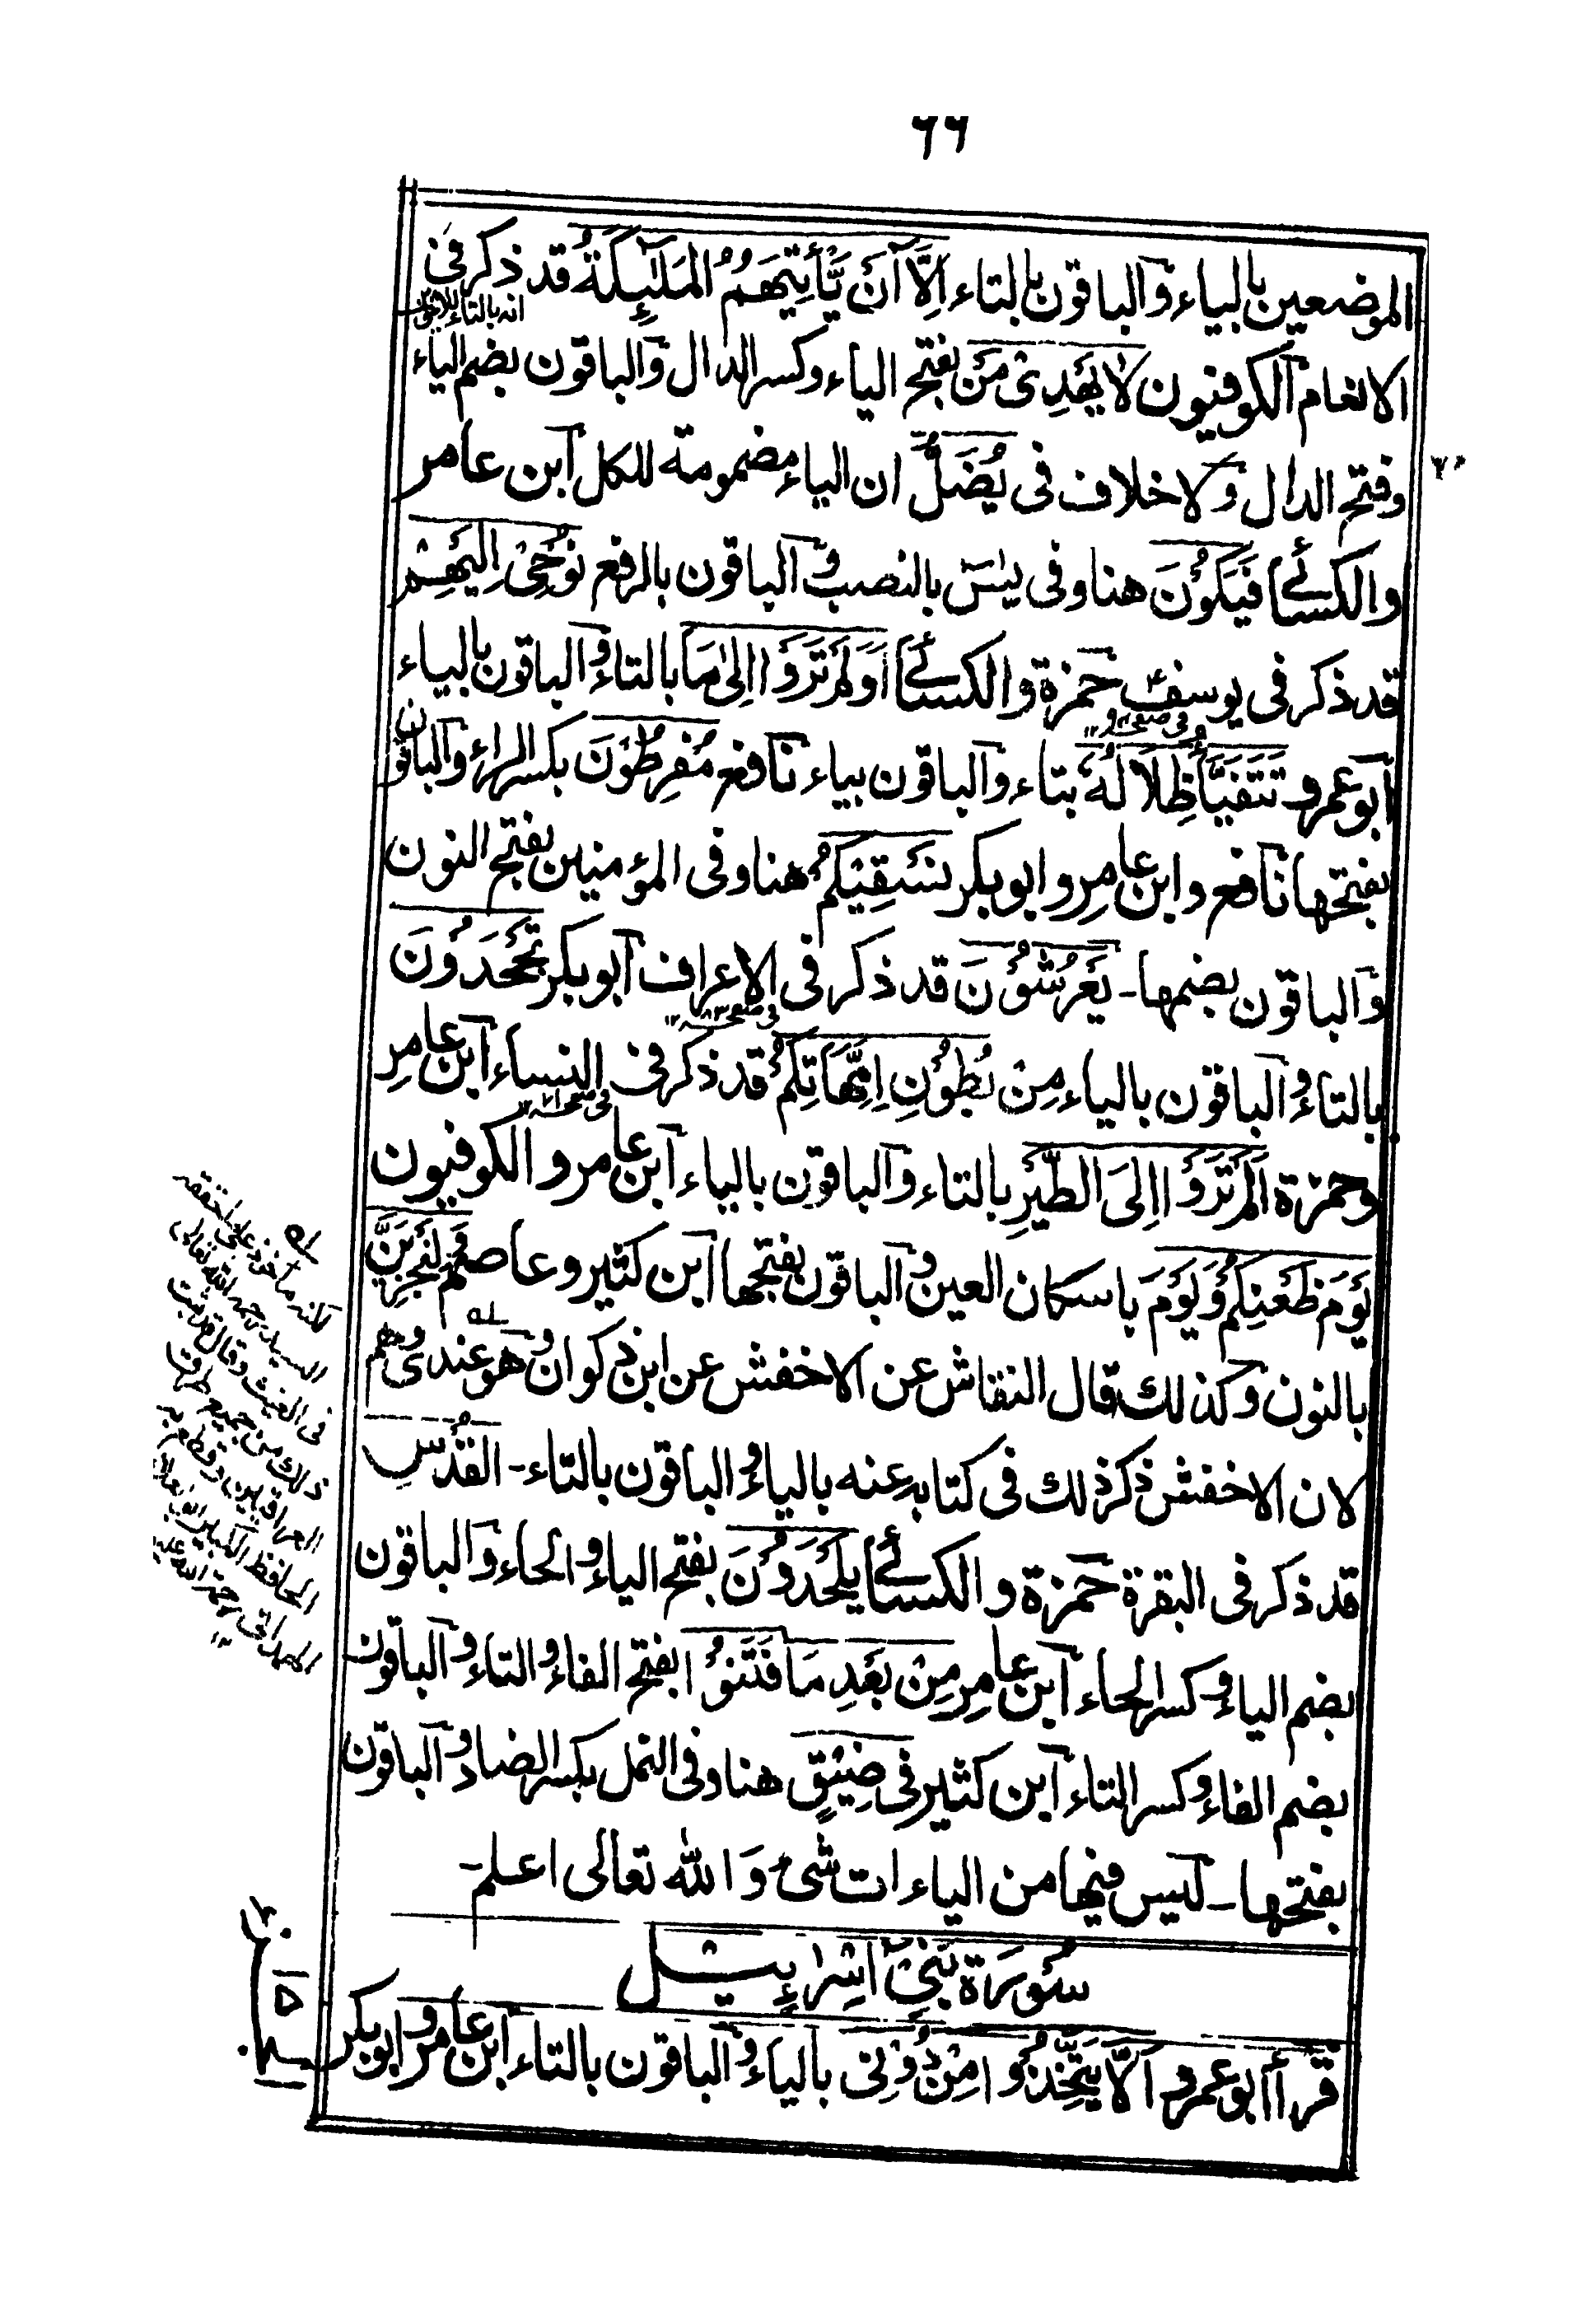 ٦٦
الموضعين بالياء والباقون بالتاء اِلَّا اَنْ يَّأْتِيَهُمُ الْمَلٰٓئِكَةُ قد ذكر فى
انه بالتاء للباقون
الانعام الكوفيون لَا يَهْدِىْ مَنْ بفتح الياء وكسر الدال والباقون بضم الياء
وفتح الدال ولا خلاف فى يُضِلُّ ان الياء مضمومة للكل ابن عامر
والكسائى فَيَكُوْنَ هنا وفى يٰسٓ بالنصب والباقون بالرفع نُوْحِىْ اِلَيْهِمْ
قد ذكر فى يوسف حمزة والكسائى اَوَلَمْ تَرَوْا اِلٰى مَا بالتاء والباقون بالياء
ابو عمرو تَتَفَيَّأُ ظِلَالُهٗ بتاء والباقون بياء نافع مُفْرِطُوْنَ بكسر الراء والباقون
بفتحها نافع وابن عامر وابو بكر نَسْقِيْكُمْ هنا وفى المؤمنين بفتح النون
والباقون بضمها - يَعْرِشُوْنَ قد ذكر فى الاعراف ابو بكر تَجْحَدُوْنَ
بالتاء والباقون بالياء مِنْ بُطُوْنِ اِمَّهَاتِكُمْ قد ذكر فى النساء ابن عامر
وحمزة اَلَمْ تَرَوْا اِلَى الطَّيْرِ بالتاء والباقون بالياء ابن عامر والكوفيون
يَوْمَ ظَعْنِكُمْ وَيَوْمَ باسكان العين والباقون بفتحها ابن كثير وعاصم وَلَنَجْزِيَنَّ
بالنون وكذلك قال النقاش عن الاخفش عن ابن ذكوان وهو عندى وهم
لان الاخفش ذكر ذلك فى كتابه عنه بالياء والباقون بالتاء - القُدُسِ
قد ذكر فى البقرة حمزة والكسائى يَلْحَدُوْنَ بفتح الياء والحاء والباقون
بضم الياء وكسر الحاء ابن عامر مِنْ بَعْدِ مَا فَتَنُوْا بفتح الفاء والتاء والباقون
بضم الفاء وكسر التاء ابن كثير فى ضِيْقٍ هنا وفى النمل بكسر الضاد والباقون
بفتحها - ليس فيها من الياءات شىء وَالله تعالى اعلم -
سُوْرَة بَنِىْٓ اِسْرَآءِيْل
قرأ ابو عمرو اَلَّا يَتَّخِذُوْا مِنْ دُوْنِى بالياء والباقون بالتاء ابن عامر وابو بكر
لكنه ماخوذ على
السيد رحمه الله تعالى
فى الغيث وقال
ذلك من جميع طرق
العراقيين وقطع به
الحافظ الكبير ابو العلاء
الهمدانى رحمة الله عليه